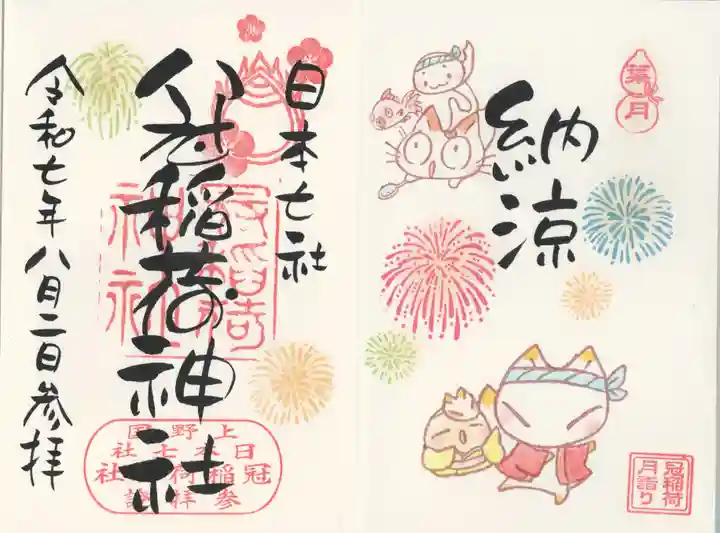 葉月
納涼
冠稲荷
月詣り
日本七社
冠稲荷神社
冠稲荷神社
上野国
日本七社
冠稲荷神社
参拝證
令和七年八月二日参拝